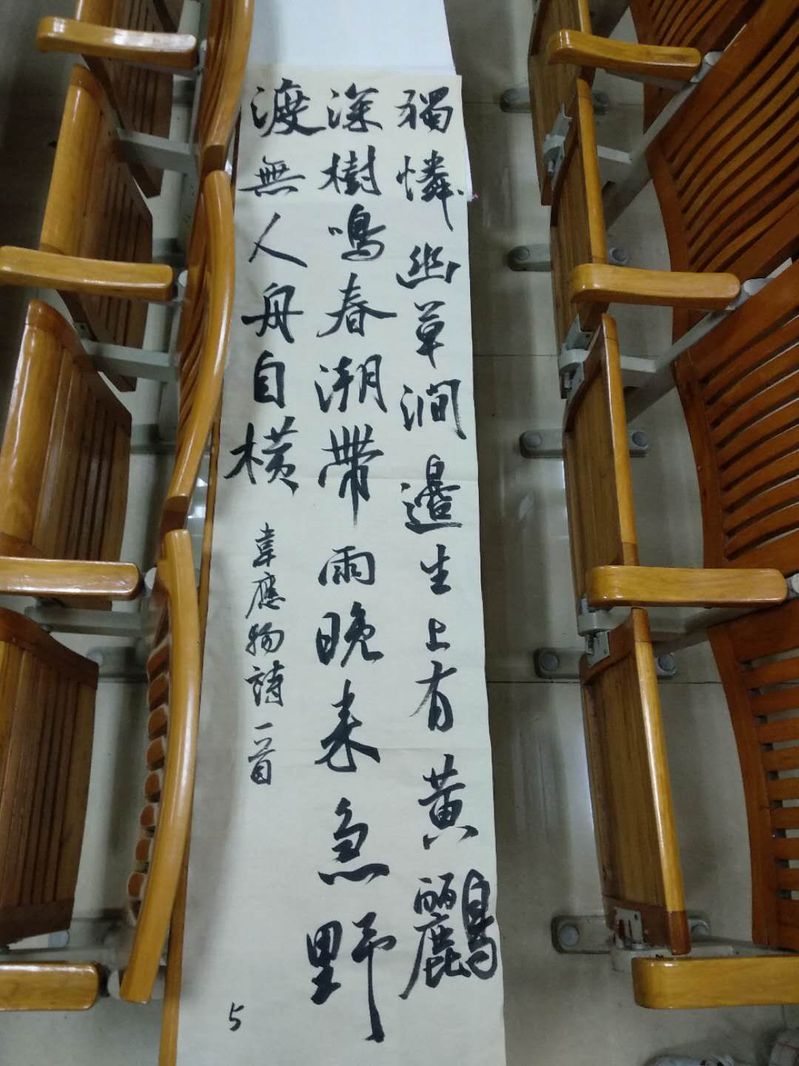 獨憐幽草澗邊生上有黃鸝
深樹鳴春潮帶雨晚來急野
渡無人舟自橫
韋應物詩一首
5